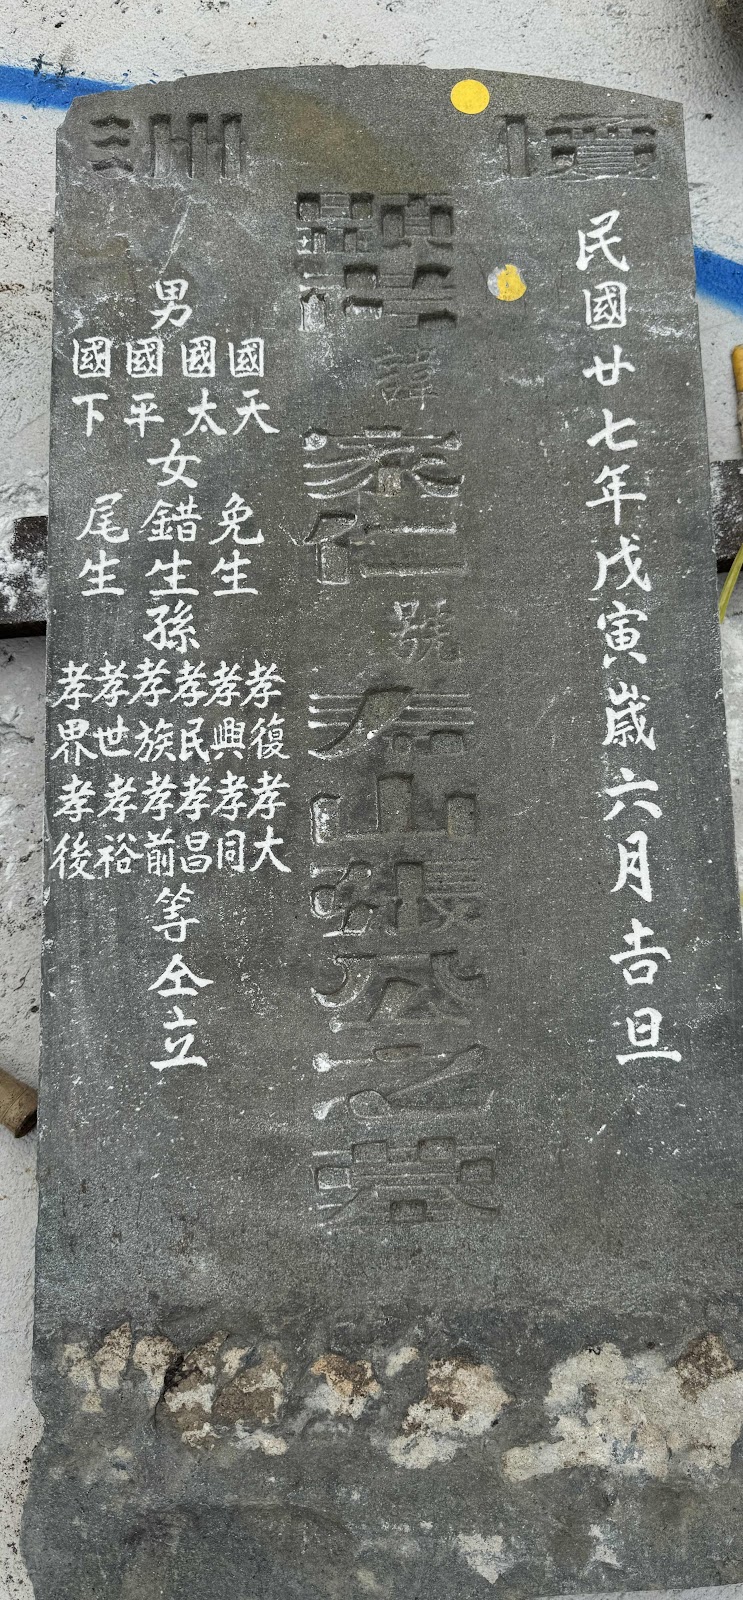 洲
民國廿七年戊寅歲六月吉旦
顯諱家仁號山張公之墓
男
國天
國太
國平
國下
女
免生
錯生
尾生
孫
孝復
孝興
孝民
孝族
孝世
孝界
孝大
孝同
孝昌
孝前
孝裕
孝後
等仝立